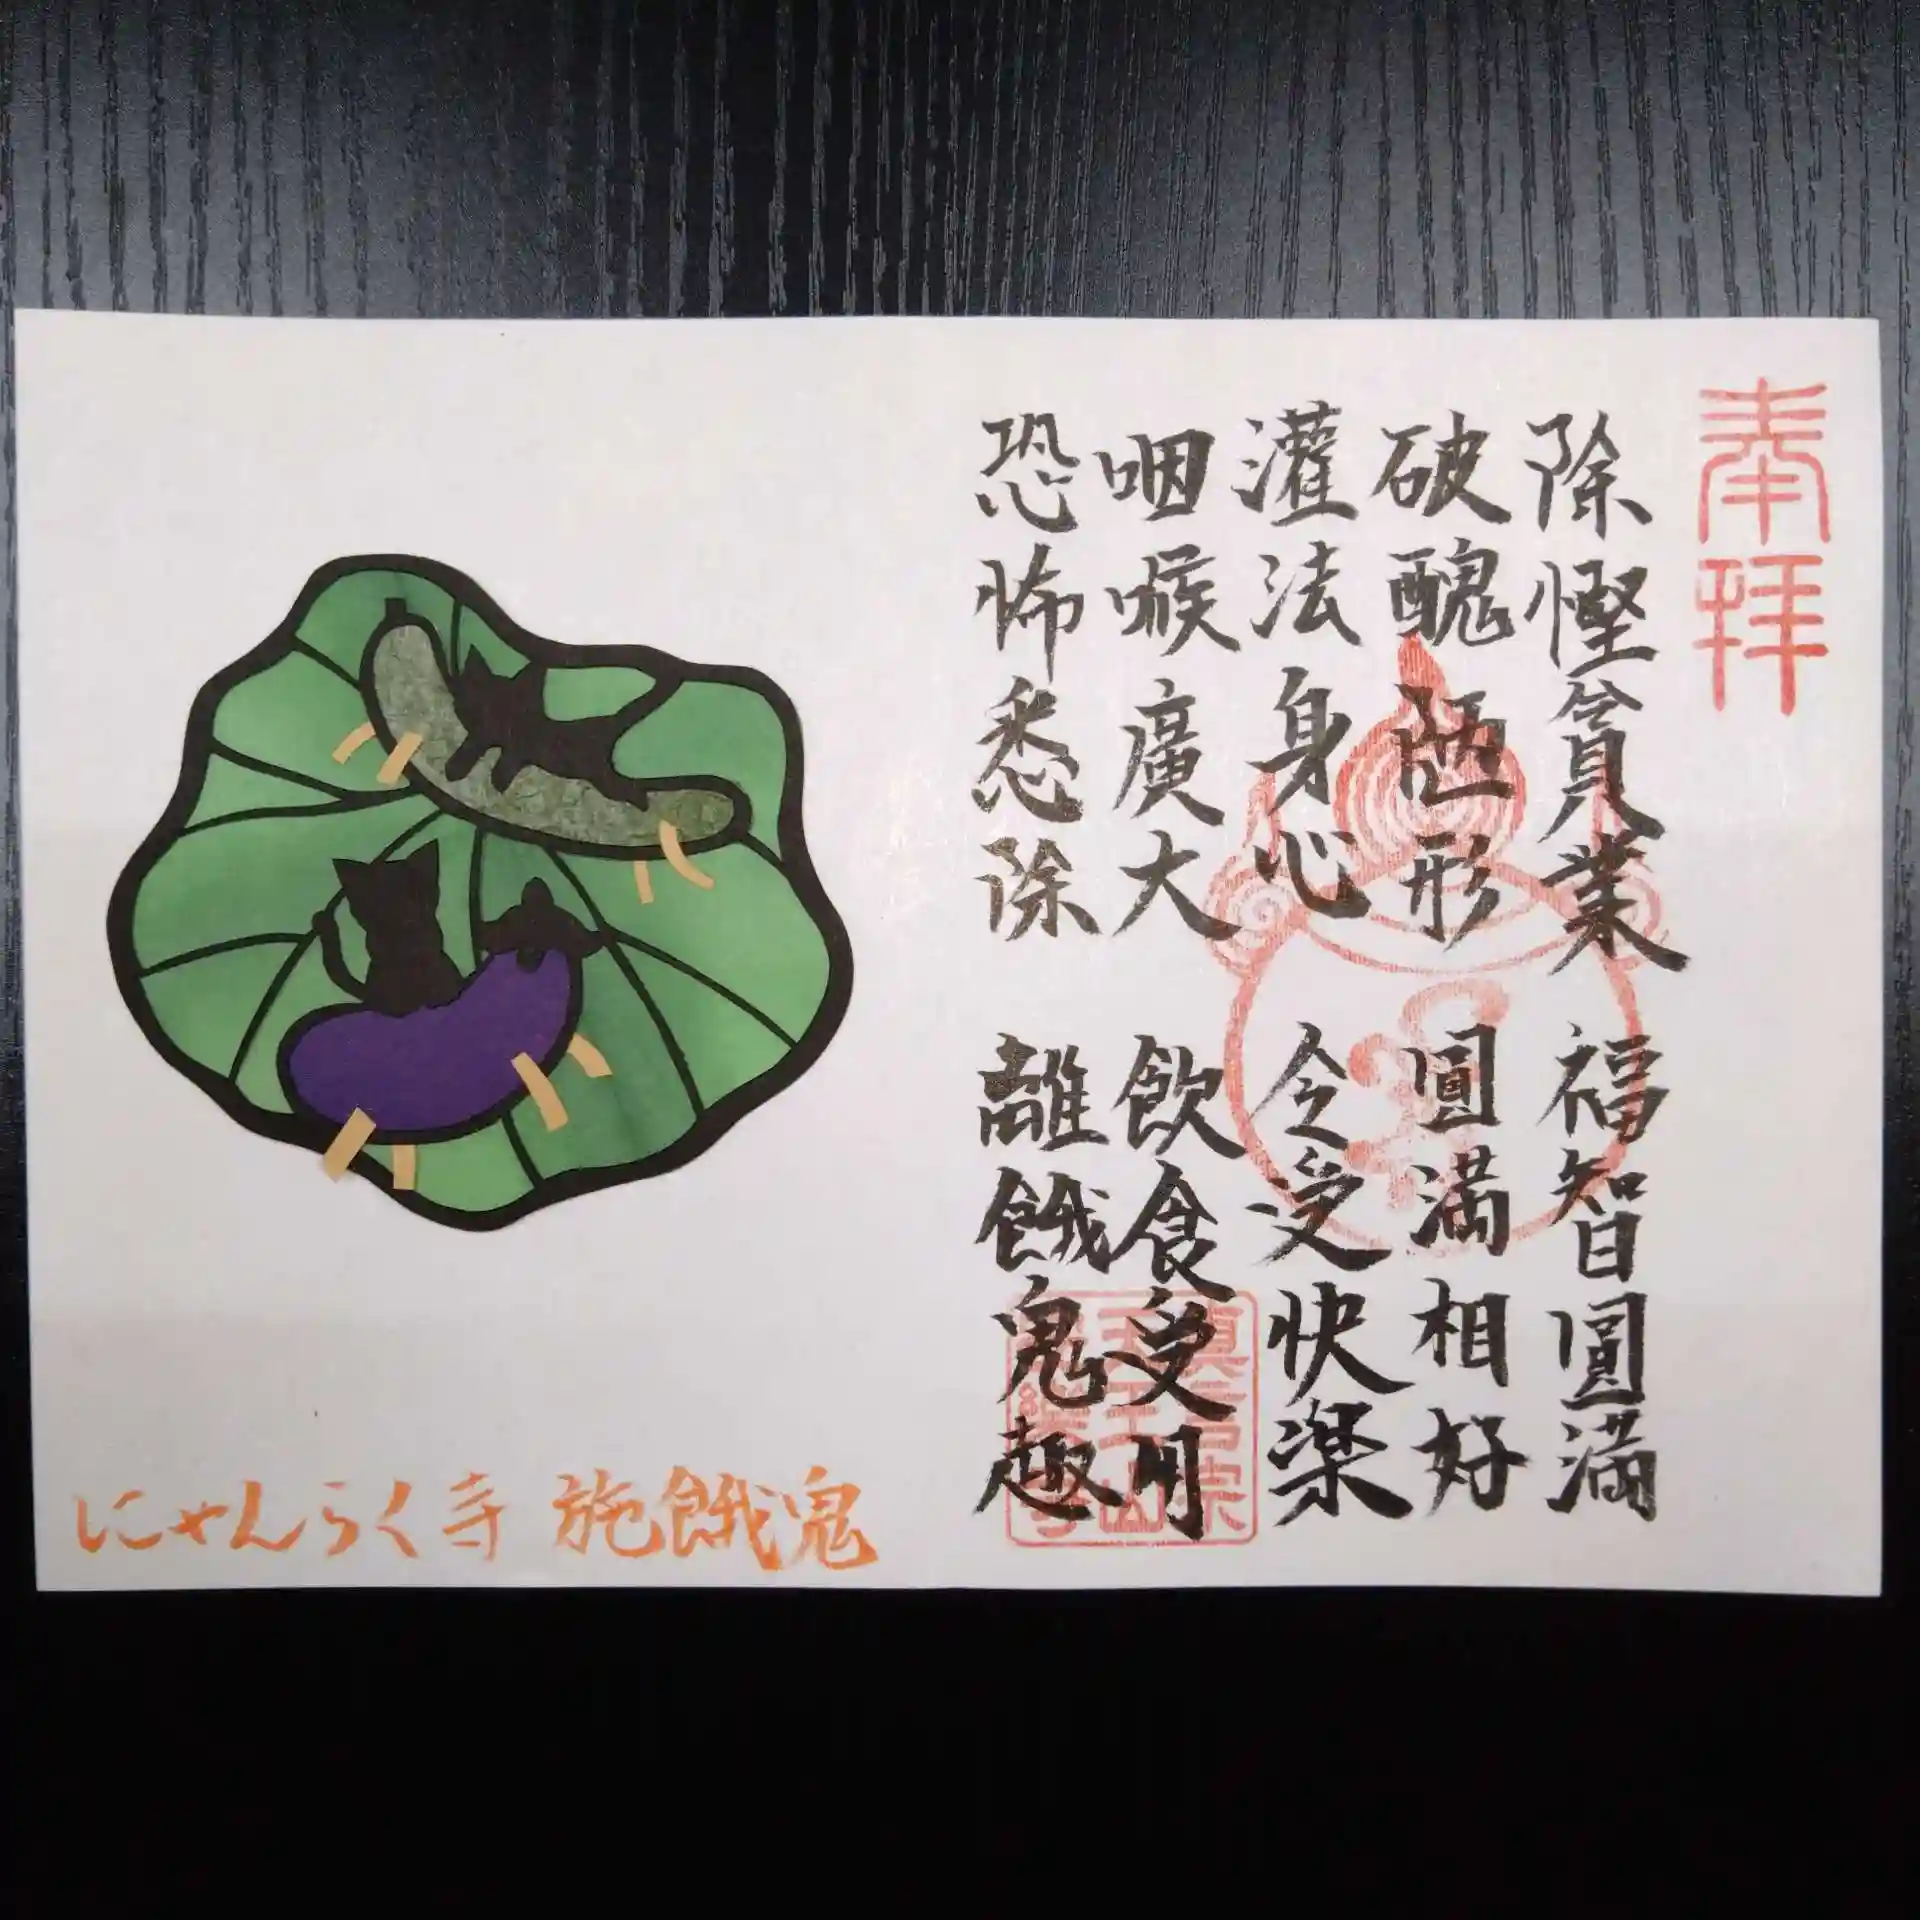 奉拝
除慳貧業 福智圓満
破醜陋形 圓満相好
灌法身心 令受快楽
咽喉廣大 飲食受用
恐怖悉除 離餓鬼趣
にゃんらく寺 施餓鬼